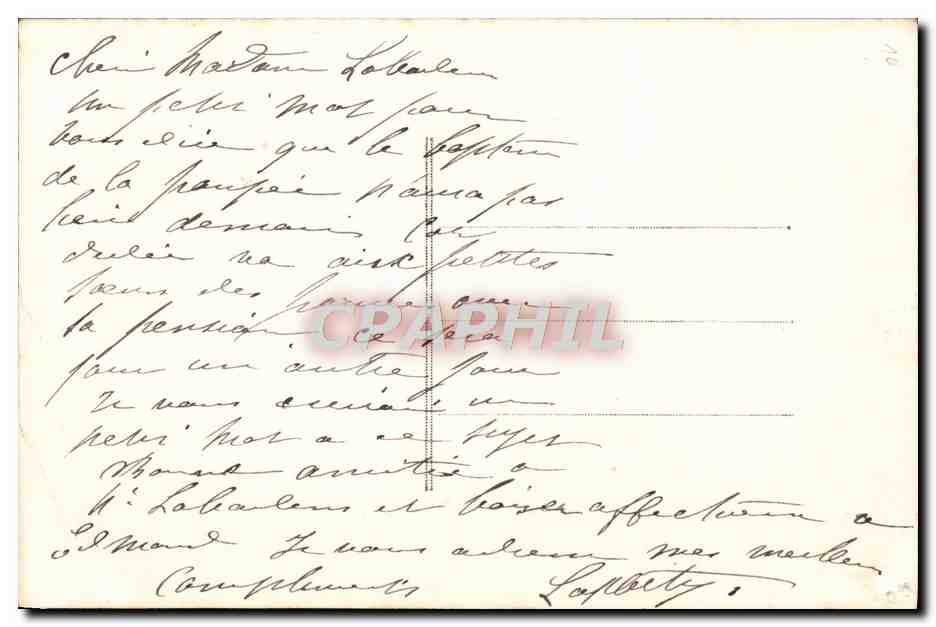 Chere Madame
un petit mot pour
vous dire que le baptême
de la poupée n'aura pas
lieu demain car
va aux petites
sœurs des avec
sa pension ce sera
pour un autre jour
Je vous un
petit mot a ce sujet
Bonne amitié a
Mr et baiser affectueux a
Edmond Je vous adresse mes meilleurs
compliments
CPAPHIL